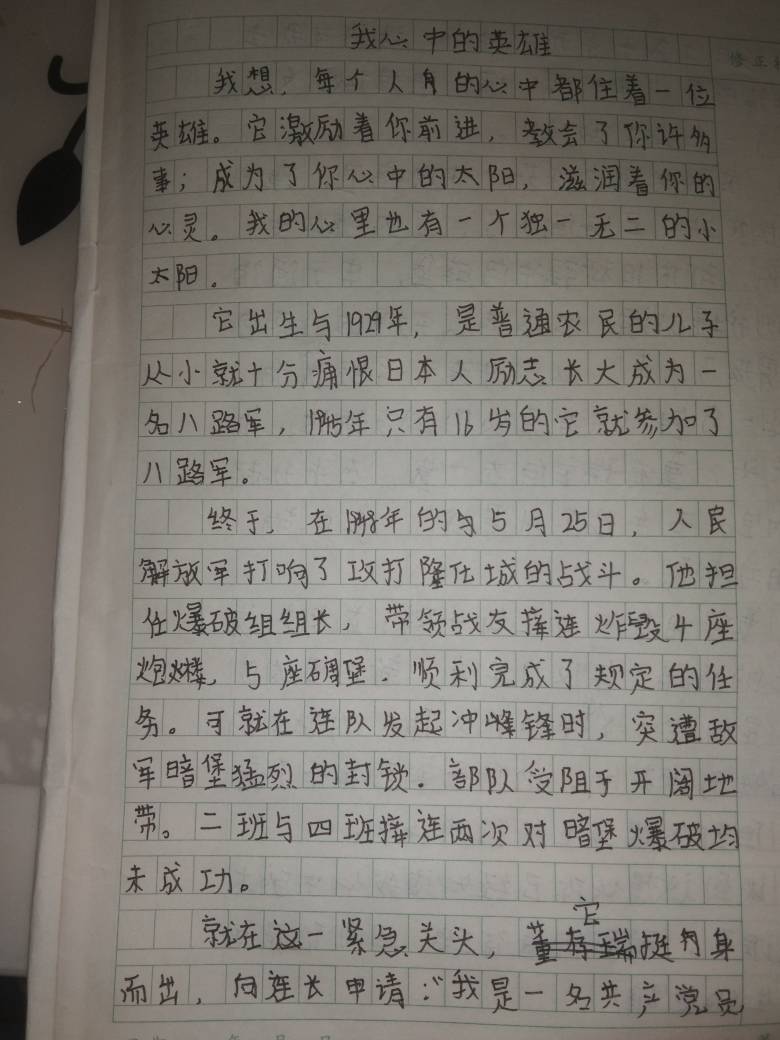 我心中的英雄
我想，每个人身的心中都住着一位
英雄。它激励着你前进，教会了你许多
事；成为了你心中的太阳，滋润着你的
心灵。我的心里也有一个独一无二的小
太阳。
它出生与1929年，是普通农民的儿子
从小就十分痛恨日本人励志长大成为一
名八路军，1945年只有16岁的它就参加了
八路军。
终于，在1948年的与5月25日，人民
解放军打响了攻打隆化城的战斗。他担
任爆破组组长，带领战友接连炸毁4座
炮楼，5座碉堡．顺利完成了规定的任
务。可就在连队发起冲锋时，突遭敌
军暗堡猛烈的封锁．部队受阻于开阔地
带。二班与四班接连两次对暗堡爆破均
未成功。
就在这一紧急关头，它挺身
而出，向连长申请："我是一名共产党员